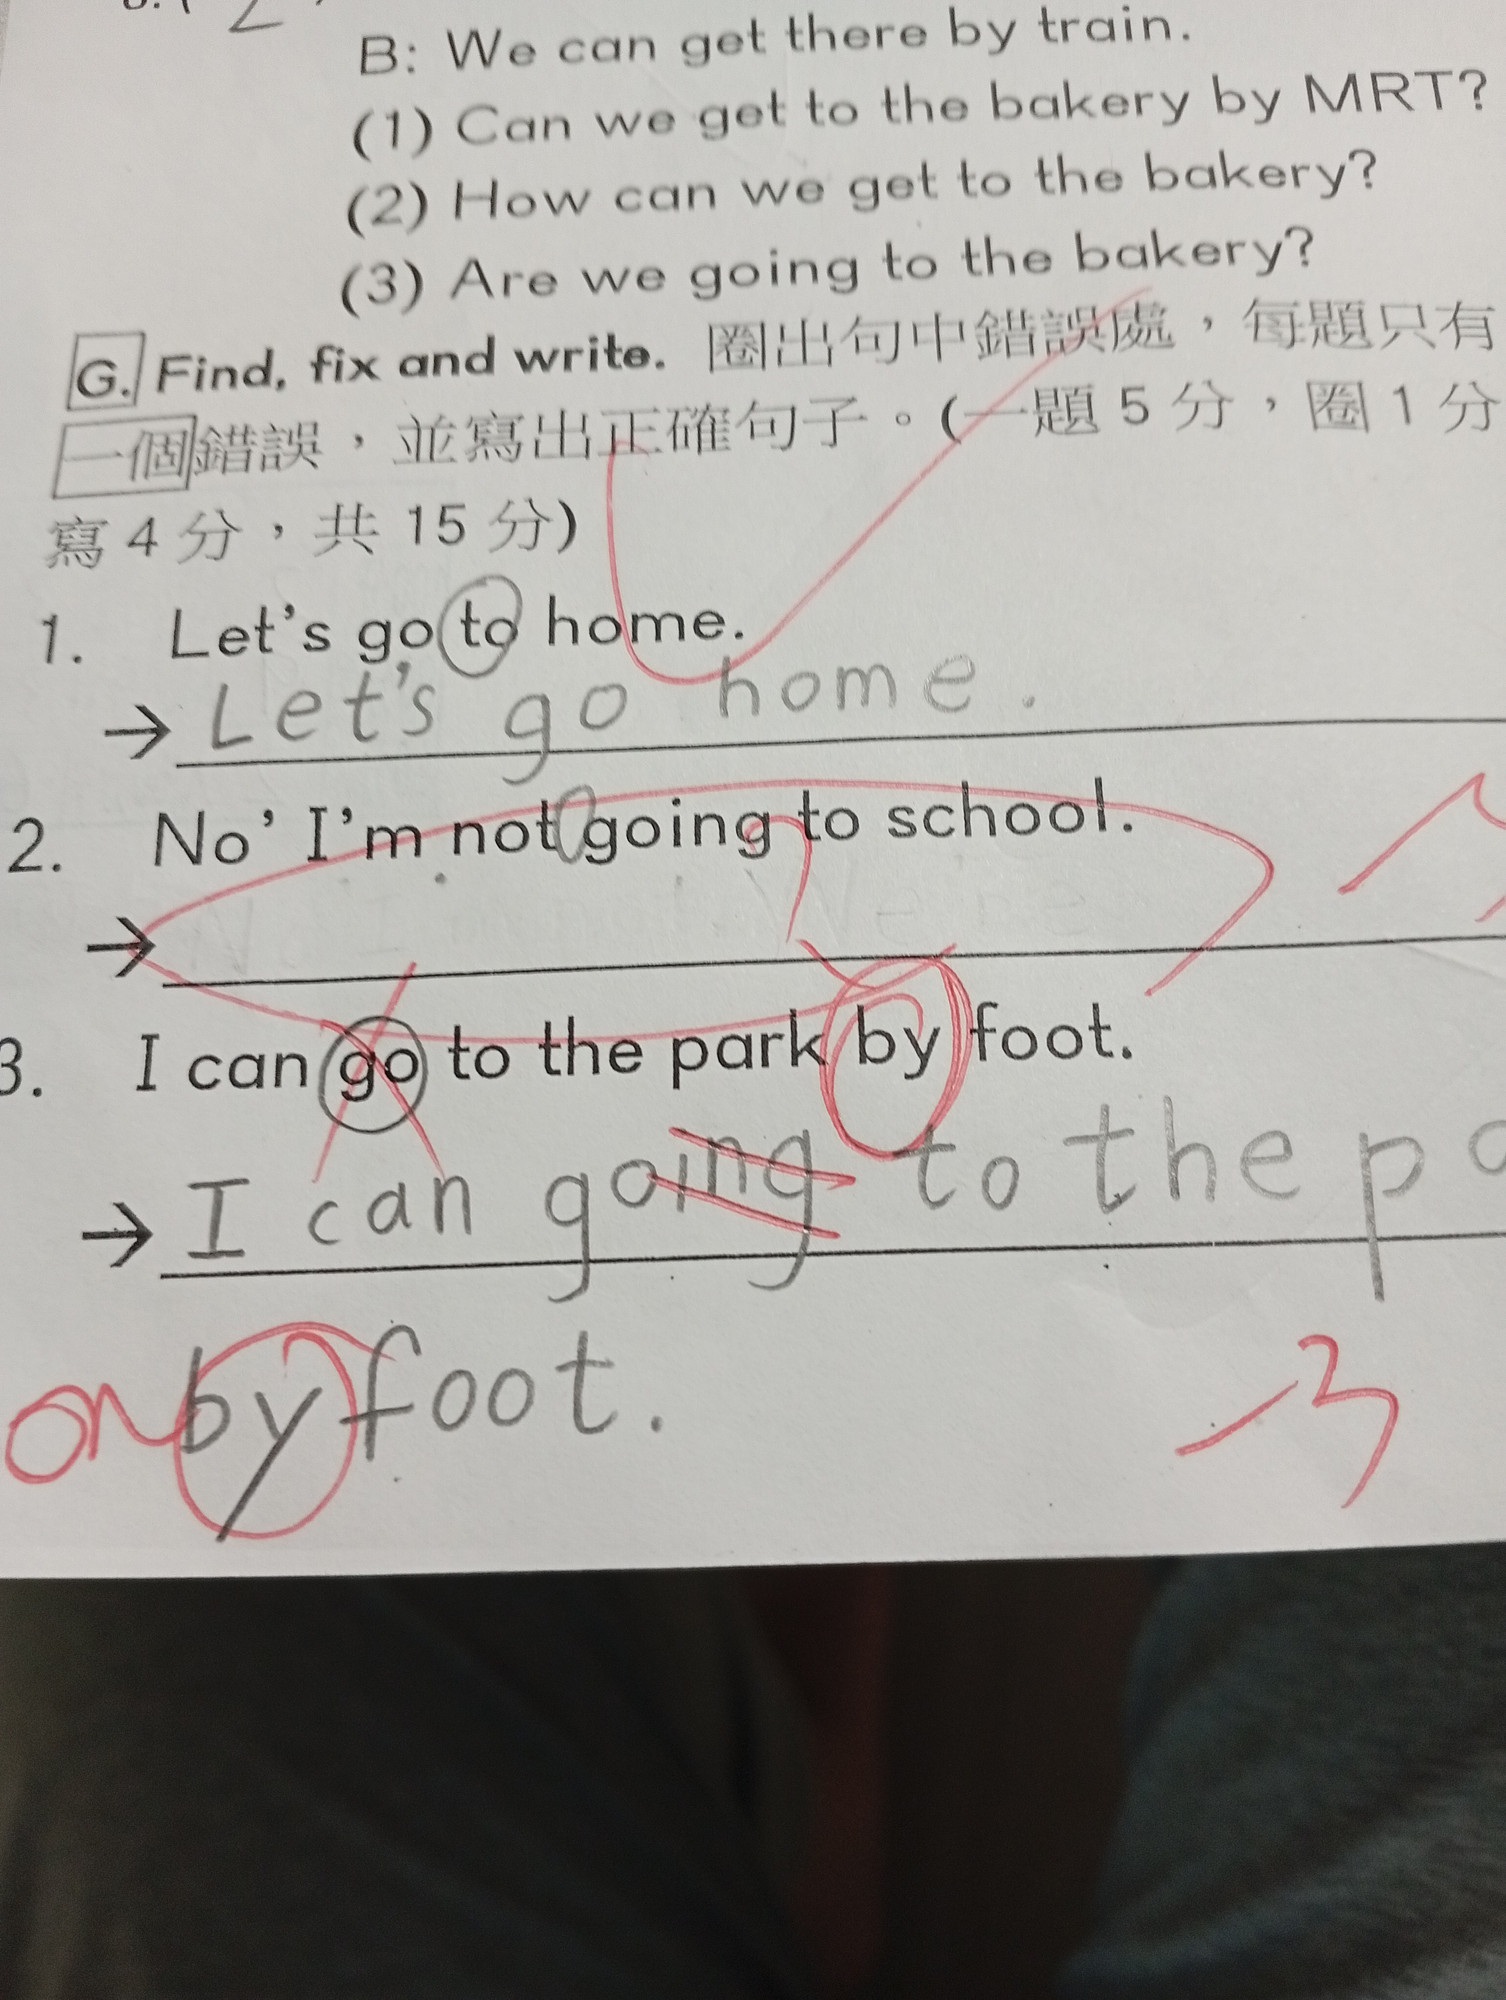 B: We can get there by train.
(1) Can we get to the bakery by MRT?
(2) How can we get to the bakery?
(3) Are we going to the bakery?
G. Find, fix and write. 圈出句中錯誤處，每題只有
一個錯誤，並寫出正確句子。(一題 5 分，圈 1 分
寫 4 分，共 15 分)
1. Let's go to home.
→ Let's go home.
2. No' I'm not going to school.
→
3. I can go to the park by foot.
→ I can going to the pa
on by foot.
-3